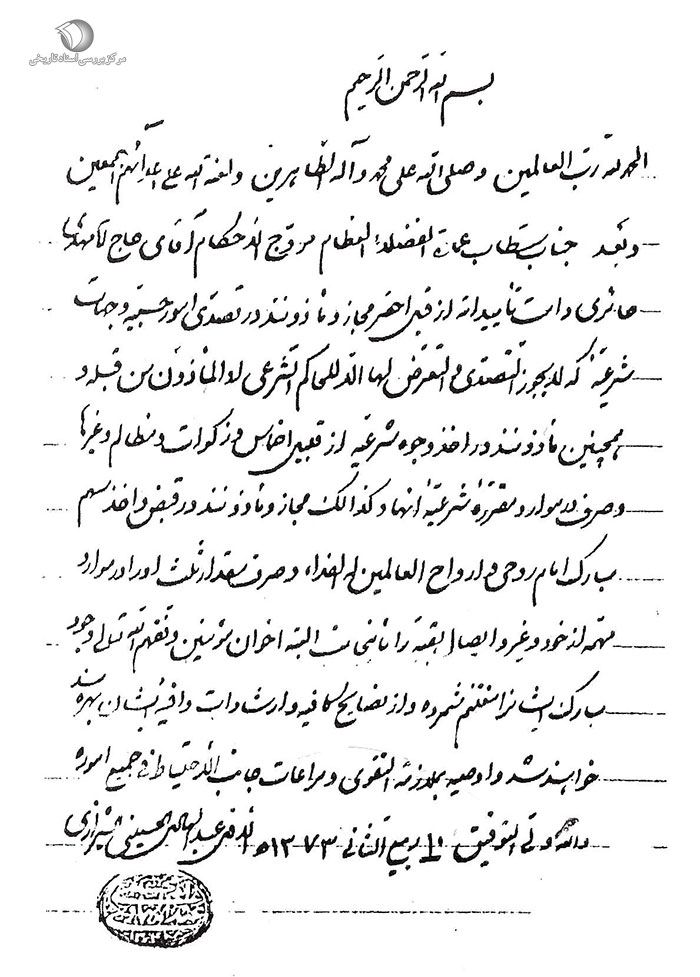 مرکز بررسی اسناد تاریخی
بسم الله الرحمن الرحیم
الحمد لله رب العالمین و صلی الله علی محمد و آله الطاهرین و لعنة الله علی اعدائهم اجمعین
و بعد جناب مستطاب عمدة الفضلاء العظام مروج الاحکام آقای حاج
حائری دامت تأییداته از قبل احقر مجاز و مأذونند در تصدی امور حسبیه و جهات
شرعیه که لا یجوز التصدی و التعرض لها الا للحاکم الشرعی او المأذون من قبله و
همچنین مأذونند در اخذ وجوه شرعیه از قبیل اخماس و زکوات و مظالم و غیرها
و صرف در موارد مقرره شرعیه آنها و کذالک مجاز و مأذونند در قبض و اخذ سهم
مبارک امام روحی و ارواح العالمین له الفداء و صرف مقدار ثلث او را در موارد
مهمه از خود و غیر و ایصال بقیه را البته اخوان مؤمنین وفقهم الله تعالی وجود
مبارک ایشانرا مغتنم شمرده و از نصایح کافیه و ارشادات وافیه ایشان بهره‌مند
خواهند شد و اوصیه بملازمة التقوی و مراعات جانب الاحتیاط فی جمیع اموره
والله ولی التوفیق ۱۰ ربیع الثانی ۱۳۷۳ه الاحقر عبدالهادی الحسینی الشیرازی